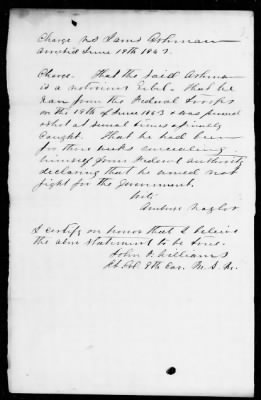 Charge vs James Ashman
arrested June 19th 1863.
Charge. That the said Ashman
is a notorious Rebel. that he
ran from the Federal Troops
on the 19th of June 1863 & was pursued
& shot at several times & finally
caught. That he had been
for three weeks concealing
himself from Federal authority
declaring that he would not
fight for the Government.
Wit.
Naylor
I certify on honor that I believe
the above statement to be true.
John F. Williams
Lt Col 9th Cav. M. S. M.